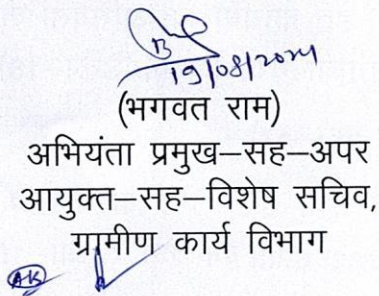 19/08/2024
(भगवत राम)
अभियंता प्रमुख–सह–अपर
आयुक्त–सह–विशेष सचिव,
ग्रामीण कार्य विभाग
AK